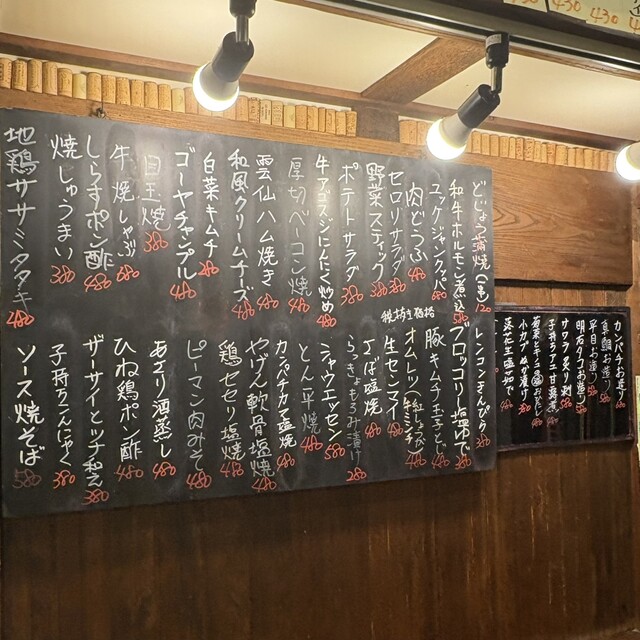 どじょう蒲焼(一串) 120
和牛ホルモン煮込 580
ユッケジャンクッパ 680
肉どうふ 480
セロリサラダ 380
野菜スティック 380
ポテトサラダ 380
牛アゴスジにんにく炒め 480
厚切ベーコン焼 480
雲仙ハム焼き 480
和風クリームチーズ 480
白菜キムチ 280
ゴーヤチャンプル 480
目玉焼 380
牛焼しゃぶ 680
しらすポン酢 480
焼しゅうまい 380
地鶏ササミタタキ 480
税抜き価格
レンコンきんぴら 380
ブロッコリー塩ゆで 380
豚キムチ玉子とじ 480
オムレツ(紅しょうが・牛すじミンチ) 480
生センマイ 480
さば塩焼 480
らっきょもろみ漬け 280
シャウエッセン 580
とん平焼 480
カンパチカマ塩焼 480
やげん軟骨塩焼 480
鶏ゼセリ塩焼 480
ピーマン肉みそ 480
あさり酒蒸し 480
ひね鶏ポン酢 480
ザーサイとツナ和え 380
子持ちこんにゃく 380
ソース焼そば 580
カンパチお造り
平目お造り 580
明石タコお造り 580
サワラ炙り刺 580
子持アユ甘露煮 580
小カブぬか漬け 380
落花生塩茹で
430
430